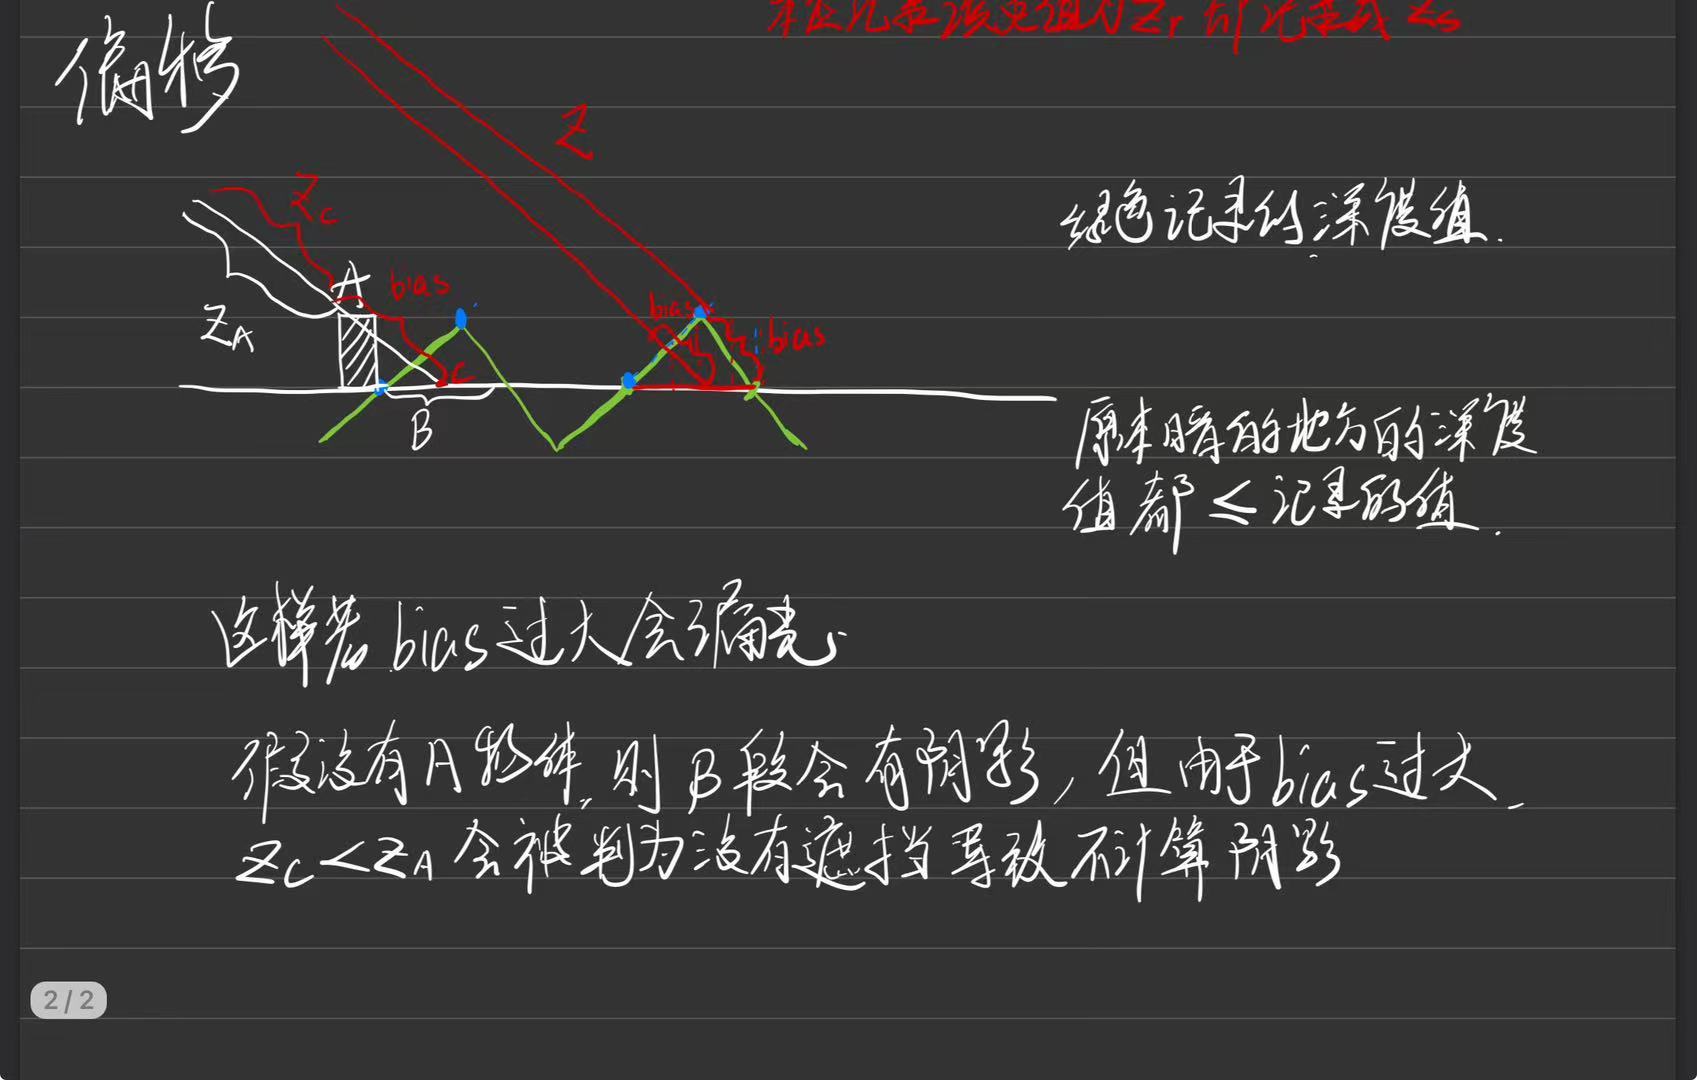 偏移
Z
Zc
A
bias
ZA
bias
bias
C
B
绿色记录的深度值.
原本暗的地方的深度
值都≤记录的值.
这样若bias过大会漏光.
假设有A物体,则B段会有阴影,但由于bias过大
Zc<ZA会被判为没有遮挡导致不计算阴影
2/2